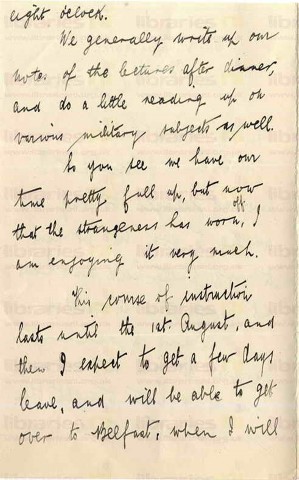 eight oclock.
We generally write up our
notes of the lectures after dinner,
and do a little reading up on
various military subjects as well.
So you see we have our
time pretty full up, but now
that the strangeness has worn off, I
am enjoying it very much.
This course of instruction
lasts until the 1st. August, and
then I expect to get a few days
leave, and will be able to get
over to Belfast, when I will